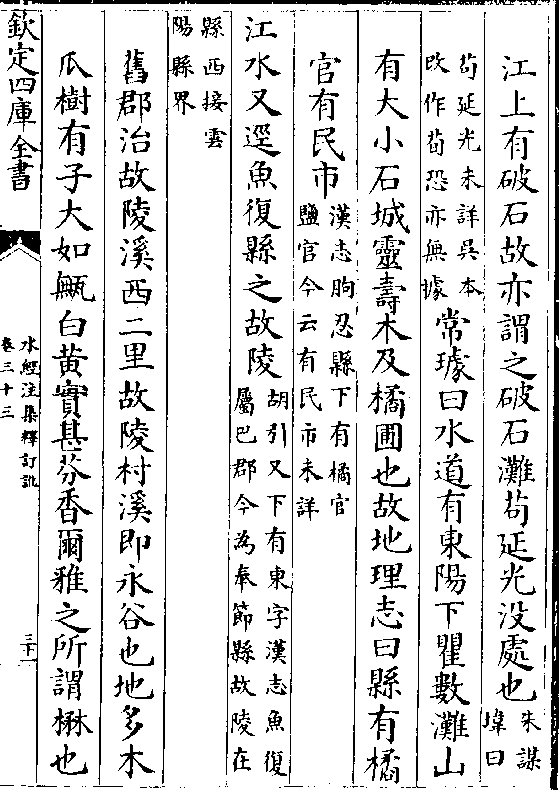 江上有破石故亦謂之破石灘苟延光没處也朱謀㙔曰
苟延光未詳吳本改作荀恐亦無據常璩曰水道有東陽下瞿數灘山
有大小石城靈壽木及橘圃也故地理志曰縣有橘
官有民市漢志朐忍縣下有橘官鹽官今云有民市未詳
江水又逕魚復縣之故陵胡引又下有東字漢志魚復屬巴郡今為奉節縣故陵在
縣西接雲陽縣界
舊郡治故陵溪西二里故陵村溪即永谷也地多木
瓜樹有子大如甒白黄實甚芬香爾雅之所謂楙也
欽定四庫全書
水經注集釋訂訛
卷三十三
三十二